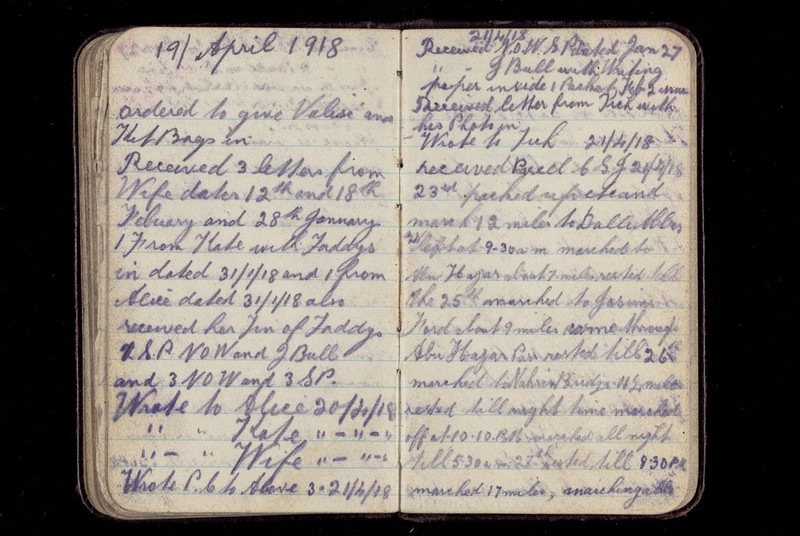 19/ April 1918
ordered to give Valise and
Kit Bags in
Received 3 letters from
Wife dates 12th and 18th
Febuary and 28th January
1 From Kate with Faddys
in dated 31/1/18 and 1 from
Alice dated 31/1/18 also
received her Tin of Faddys
& S.P NOW and J Bull
and 3 NOW and 3 SP.
Wrote to Alice 20/4/18
" " Kate " - " - "
" - " Wife " - " - "
Wrote P.C to Above 3. 21/4/18
21/4/18
Received N.O.W. S P dated Jan 27
" - J Bull with Writing
paper inside 1 Packet
Received letter from with
his Photo in
Wrote to 21/4/18
received C S J 21/4/18
23rd packed up and
march 12 miles to
at 9-30 am marched to
Abu Hajar about 7 miles rested till
the 25th marched to
Ford about 9 miles came through
Abu Hajar Pass rested till 26th
marched to Nahrin Bridge miles
rested till night time marched
off at 10.10.PM marched all night
till 5 30 am 27th rested till 8 30 PM
marched 17 miles, marching